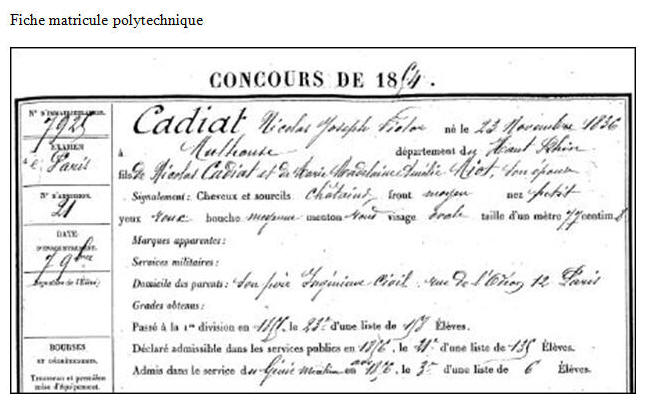 Fiche matricule polytechnique
CONCOURS DE 1854.
N° D'IMMATRICULATION.
7925
EXAMEN
de Paris
N° D'ADMISSION
21
DATE
7 9bre
(Signature de l'Élève)
BOURSES
ET DÉGRÈVEMENTS.
Trousseau et première
mise d'équipement.
Cadiat Nicolas Joseph Victor né le 23 Novembre 1836
à Mulhouse département du Haut Rhin
fils de Nicolas Cadiat et de Marie Madelaine Emilie Riot, son épouse
Signalement: Cheveux et sourcils châtains front moyen nez petit
yeux roux bouche moyenne menton rond visage ovale taille d'un mètre 77 centim.
Marques apparentes:
Services militaires:
Domicile des parents: Son père Ingénieur Civil, rue de l'Odéon 12 Paris
Grades obtenus:
Passé à la 1re division en 1855, le 23e d'une liste de Élèves.
Déclaré admissible dans les services publics en 1856, le d'une liste de 135 Élèves.
Admis dans le service du Génie maritime en 1856, le 3e d'une liste de 6 Élèves.